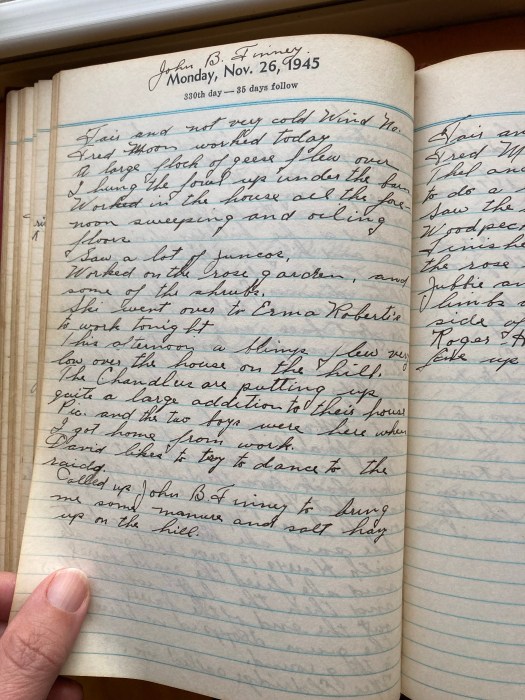 John B. Finney.
Monday, Nov. 26, 1945
330th day — 35 days follow
Fair and not very cold Wind No.
Fred Moon worked today
A large flock of geese flew over
I hung the fowl up under the barn
Worked in the house all the fore-
noon sweeping and oiling
floors
Saw a lot of juncos,
Worked on the rose garden, and
some of the shrubs.
Ski went over to Erma Robert's
to work tonight
This afternoon a blimp flew very
low over the house on the hill.
The Chandlers are putting up
quite a large addition to their house
Pic. and the two boys were here when
I got home from work.
David likes to try to dance to the
raido.
Called up John B. Finney to bring
me some manure and salt hay
up on the hill.
Fair an
Fred M
Thel and
to do a
Saw the
Woodpeck
Finish
the rose
limbs
side of
Roger